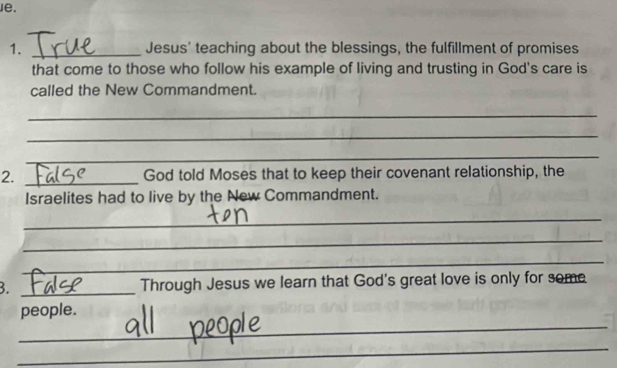 1. True Jesus' teaching about the blessings, the fulfillment of promises
that come to those who follow his example of living and trusting in God's care is
called the New Commandment.
2. False God told Moses that to keep their covenant relationship, the
Israelites had to live by the New Commandment.
ten
3. False Through Jesus we learn that God's great love is only for some
people.
all people